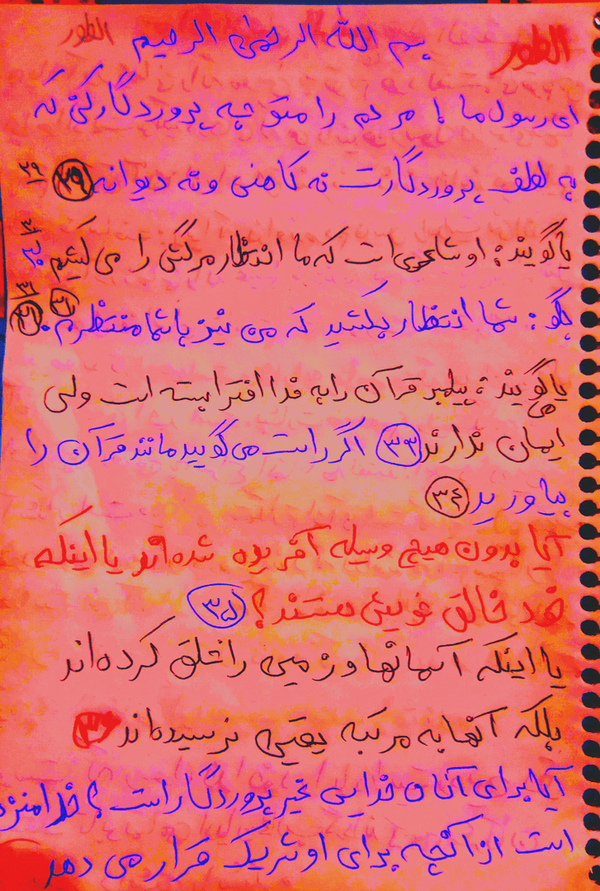 الطور بسم الله الرحمن الرحیم الطور
ای رسول ما! مردم را متوجه پروردگار کن که
به لطف پروردگارت نه کاهنی و نه دیوانه ۲۹ ۲۹
یا گویند: او شاعری است که ما انتظار مرگش را می کشیم ۳۰
بگو: شما انتظار بکشید که من نیز با شما منتظرم. ۳۱ ۳۱
یا گویند: پیامبر قرآن را به خدا افترا بسته است ولی
ایمان ندارند ۳۳ اگر راست می گویید مانند قرآن را
بیاورید ۳۴
آیا بدون هیچ وسیله آفریده شده اند یا اینکه
خود خالق خویش هستند؟ ۳۵
یا اینکه آسمانها و زمین را خلق کرده اند
بلکه آنها به مرتبه یقین نرسیده اند ۳۶
آیا برای آنان خدایی غیر پروردگار است؟ خدا منزه
است از آنچه برای او شریک قرار می دهد